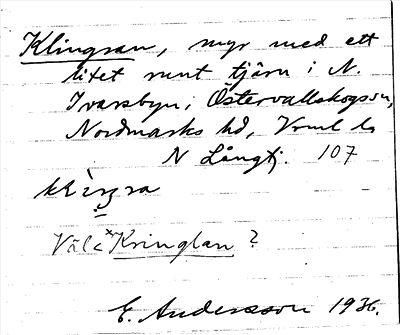 Klingran, myr med ett
litet runt tjärn i N.
Ivarsbyn, Östervallskogs sn,
Nordmarks hd, Vrml ls
N Långtj. 107
klìŋra
Väl < *Kringlan ?
E. Andersson 1936.